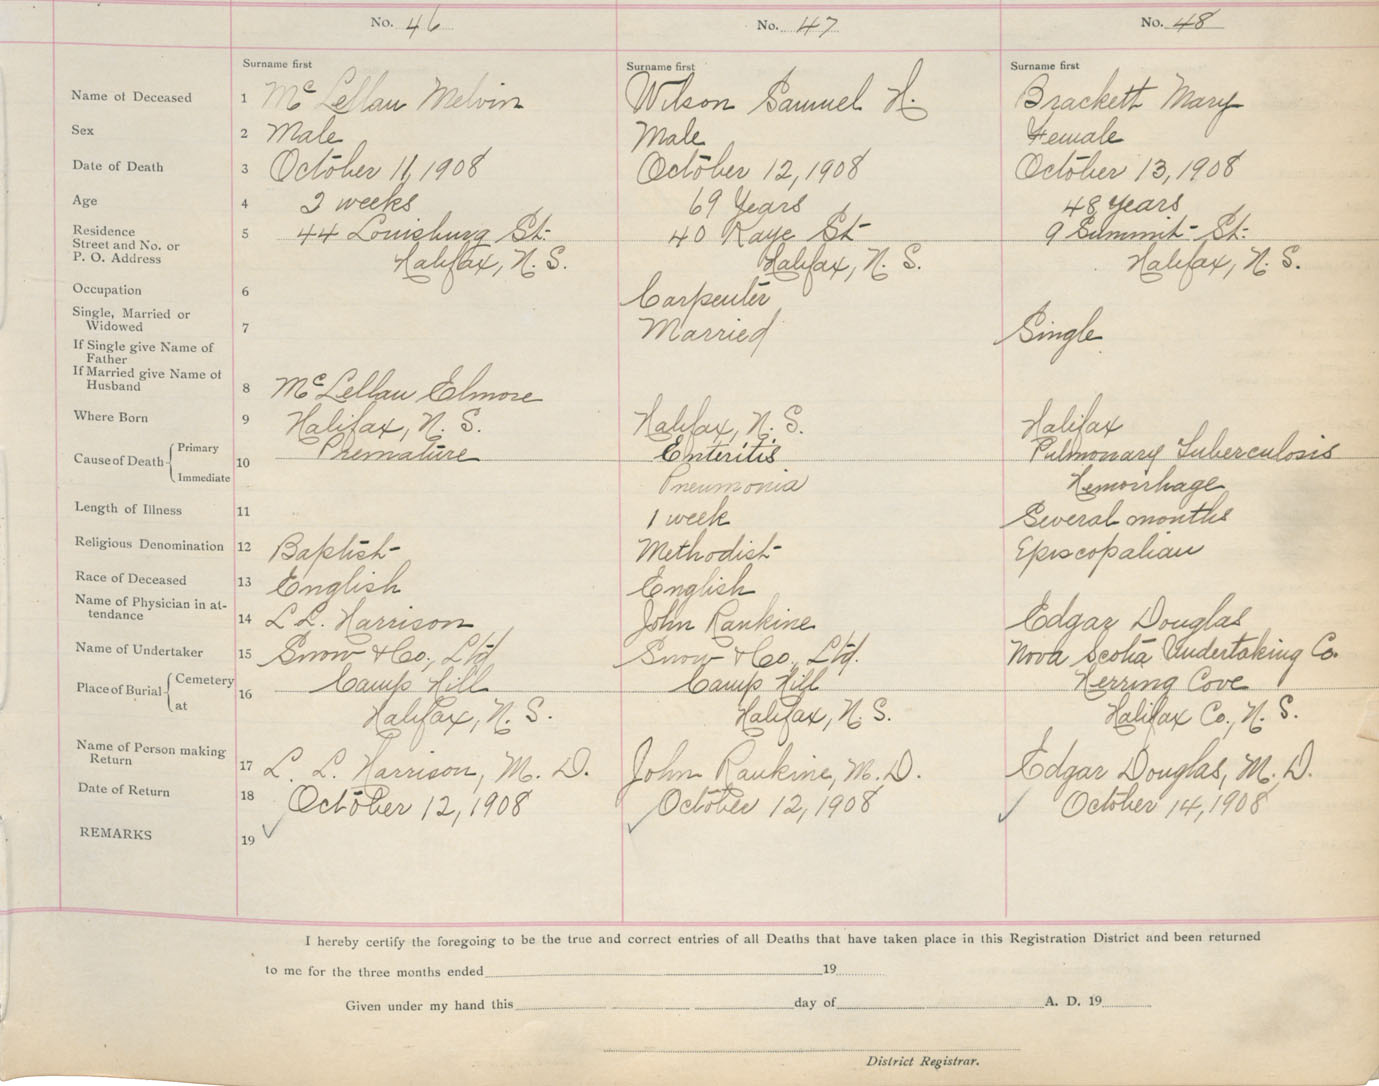 No. 46 No. 47 No. 48
Surname first Surname first Surname first
Name of Deceased 1 McLellan Melvin Wilson Samuel H. Brackett Mary
Sex 2 Male Male Female
Date of Death 3 October 11, 1908 October 12, 1908 October 13, 1908
Age 4 2 weeks 69 Years 48 years
Residence 5 44 Louisburg St. 40 Kaye St 9 Summit St.
Street and No. or
P. O. Address Halifax, N. S. Halifax, N. S. Halifax, N. S.
Occupation 6 Carpenter
Single, Married or
Widowed 7 Married Single
If Single give Name of
Father
If Married give Name of
Husband 8 McLellan Elmore
Where Born 9 Halifax, N. S. Halifax, N. S. Halifax
Cause of Death Primary 10 Premature Enteritis Pulmonary Tuberculosis
Immediate Pneumonia Hemorrhage
Length of Illness 11 1 week Several months
Religious Denomination 12 Baptist Methodist Episcopalian
Race of Deceased 13 English English
Name of Physician in at-
tendance 14 L. L. Harrison John Rankine Edgar Douglas
Name of Undertaker 15 Snow & Co., Ltd Snow & Co., Ltd. Nova Scotia Undertaking Co.
Place of Burial Cemetery 16 Camp Hill Camp Hill Herring Cove
at Halifax, N. S. Halifax, N. S. Halifax Co., N. S.
Name of Person making
Return 17 L. L. Harrison, M. D. John Rankine, M. D. Edgar Douglas, M. D.
Date of Return 18 October 12, 1908 October 12, 1908 October 14, 1908
REMARKS 19
I hereby certify the foregoing to be the true and correct entries of all Deaths that have taken place in this Registration District and been returned
to me for the three months ended 19
Given under my hand this day of A. D. 19
District Registrar.